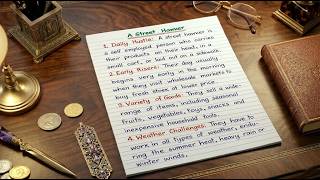 A Street Hawker
1. Daily Hustle: A street hawker is
a self employed person who carries
their products on their head, in a
small cart, or laid out on a sidewalk.
2. Early Risers: Their day usually
begins very early in the morning
when they visit wholesale markets to
buy fresh stock at lower price.
3. Variety of Goods: They sell a wide
range of items, including seasonal
fruits, vegetables, toys, snacks and
inexpensive household tools.
4. Weather Challenges: They have to
work in all types of weather, endu-
ring the summer heat, heavy rain or
winter winds.